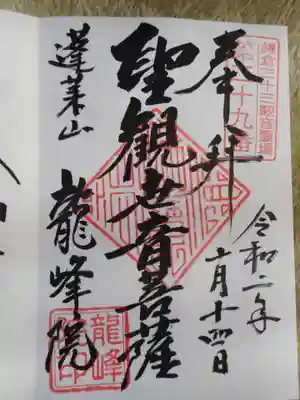 鎌倉三十三観音霊場
十九番
奉拝
令和二年
月十四日
聖観世音菩薩
蓬莱山
龍峰院
龍峰院印